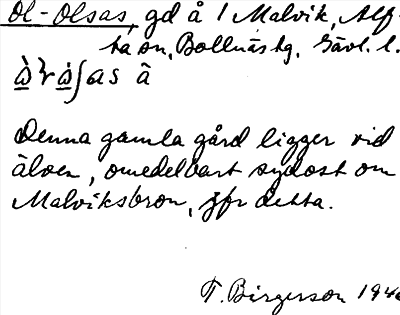 Ol-Olsas, gd å 1 Malvik, Alf-
ta sn, Bollnäs tg, Gävl. l.
Denna gamla gård ligger vid
älven, omedelbart sydost om
Malviksbron, jfr detta.
T. Birgerson 194